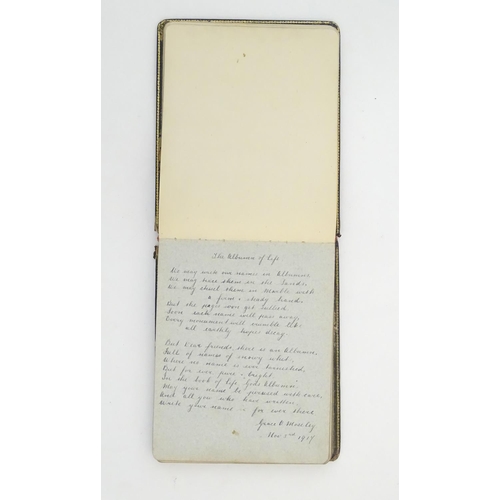 The Album of Life
We may write our names in Albums
We may trace them in the Sands
We may chisel them in Marble with
a firm & steady hand.
But the pages soon get sullied
Soon each name will
Every monument will crumble like
all earthly hopes decay
But Dear friends, there is an Album
Full of names of
Where no name is ever tarnished
But for ever pure & bright
In the book of life, God's Album
May your name be penned with care
And all you who have written
Write your name for ever there
Grace
Nov 1917